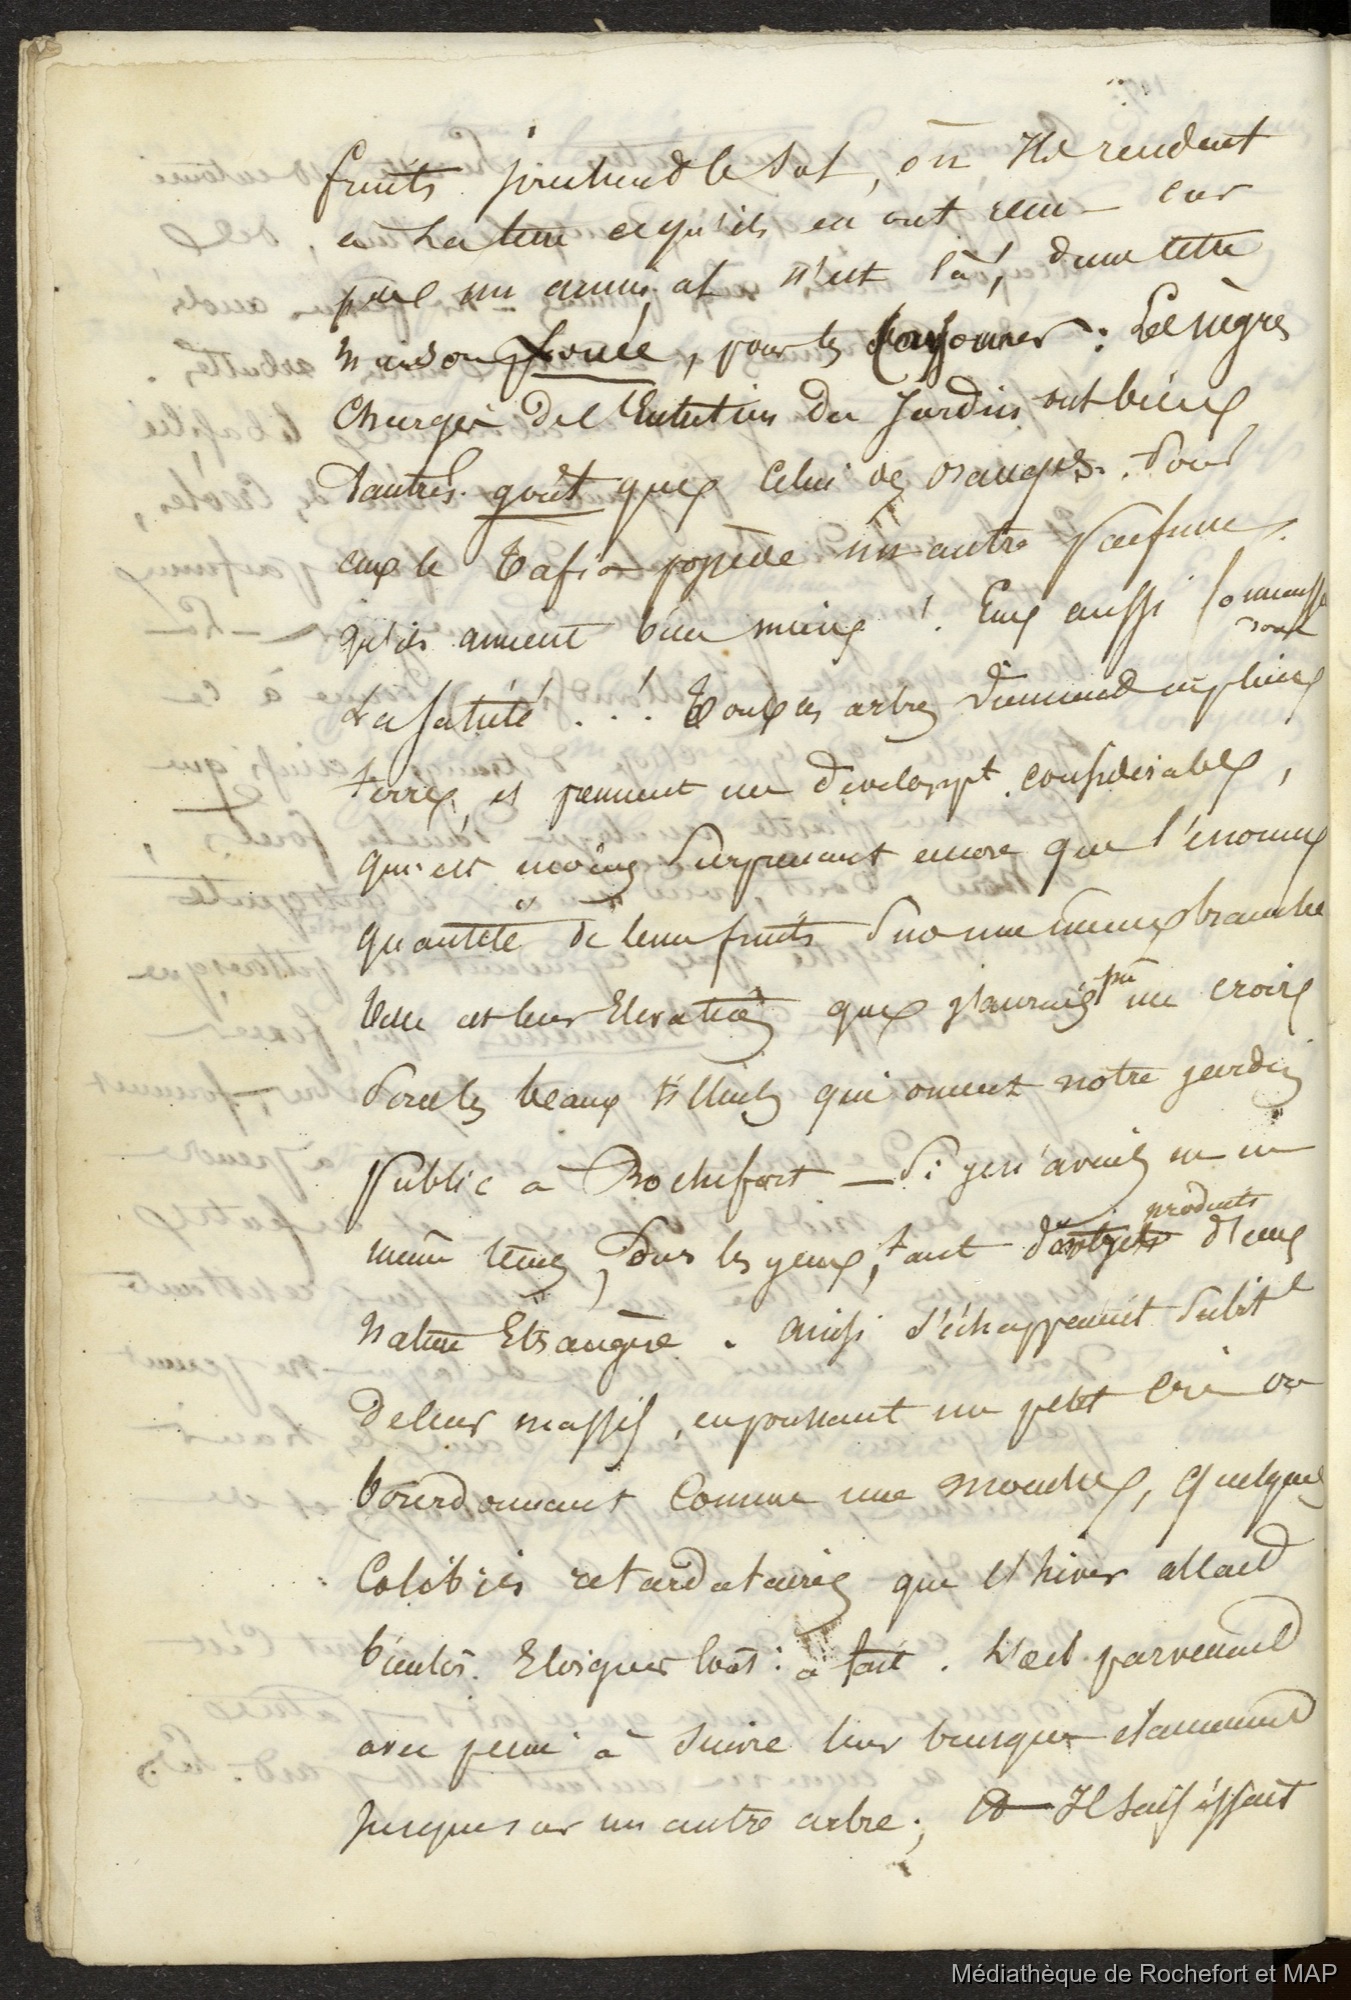 fruits jonchent le sol, où Ils rendent
à La terre ce qu'ils en ont reçu – car
pas un animal n'est là, dans cette
maison, pour les : Les nègres
Chargés de l'Entretien du Jardin ont bien
d'autres goût que Celui des oranges. Pour
eux le Tafia possède un autre Parfum
qu'ils aiment bien mieux ! Eux aussi
La satiété . . ! Tous ces arbres viennent en pleine
terre, et prennent un developpt considerable,
qui est moins surprenant encore que l'énorme
quantité de leurs fruits sur une même branche
Telle est leur Elevation que j'aurais pu me croire
sous les beaux tilleuls qui ornent notre jardin
Public à Rochefort – Si je n'avais eu en
même temps, sous les yeux, tant d'objets produits d'une
Nature Etrangère . ainsi s'échappaient subitt
de leur massif, en poussant un petit Cri ou
bourdonnant Comme une mouche, quelques
Colibris retardataires que l'hiver allait
bientôt Eloigner tout à fait . L'œil parvenait
avec peine à suivre leur brusque
jusque sur un autre arbre ; Il
Médiathèque de Rochefort et MAP